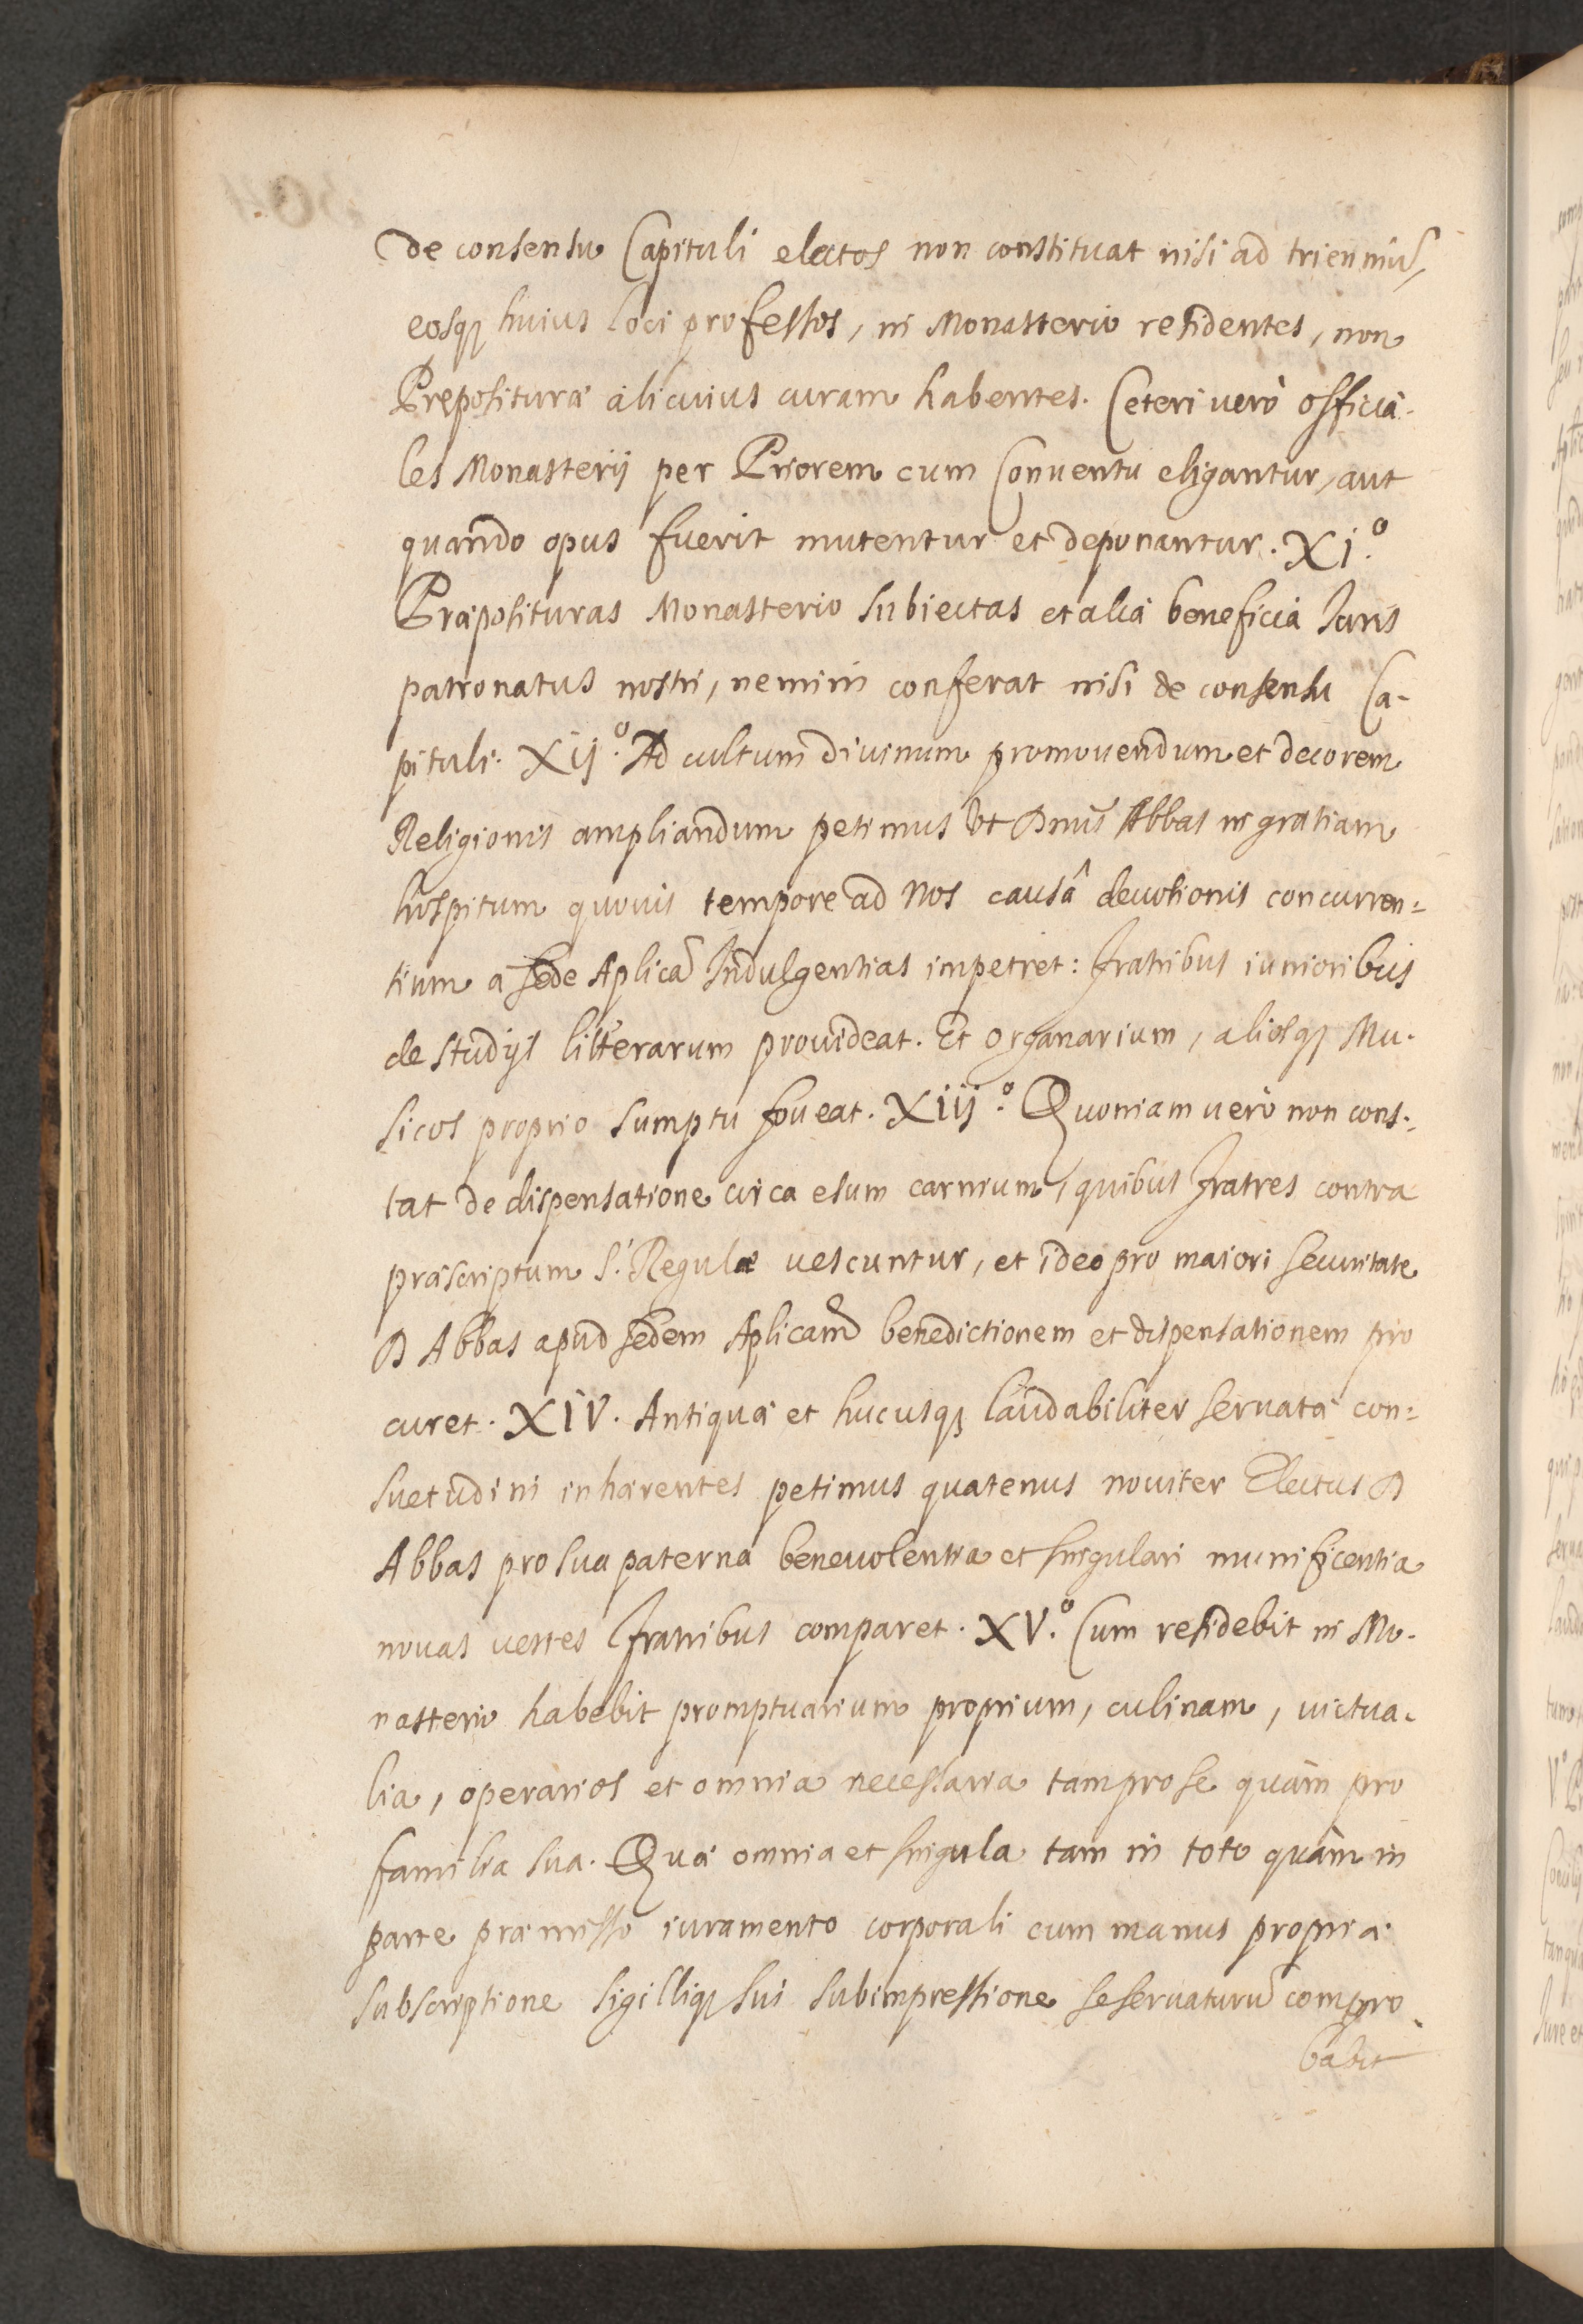 de consensu Capituli electos non constituat nisi ad trienniũ,
eosq̃ huius loci professos, in Monasterio residentes, non
Preposituræ alicuius curam habentes. Ceteri verò officia-
les Monasterij per Priorem cum Conuentu eligantur, aut
quando opus fuerit mutentur et deponantur. XI.º
Præposituras Monasterio subiectas et alia beneficia Juris
patronatus nostri, nemini conferat nisi de consensu Ca-
pituli. XIJ.º Ad cultum diuinum promouendum et decorem
Religionis ampliandum petimus vt Dnũs Abbas in gratiam
hospitum quouis tempore ad nos causâ deuotionis concurren=
tium a sede Aplicã Indulgentias impetret: Fratribus iunioribus
de studijs litterarum prouideat. Et organarium, aliosq̃ Mu-
sicos proprio sumptu foueat. XIIJ.º Quoniam verò non cons-
tat de dispensatione circa esum carnium, quibus Fratres contra
præscriptum S. Regulæ vescuntur, et ideo pro maiori securitate
D Abbas apud sedem Aplicam̃ benedictionem et dispensationem pro
curet. XIV. Antiquæ et hucusq̃ laudabiliter seruatæ con=
suetudini inhærentes petimus quatenus nouiter Electus D
Abbas pro sua paterna beneuolentia et singulari munificentia
nouas vestes Fratribus comparet. XV.º Cum residebit in Mo-
nasterio habebit promptuarium proprium, culinam, victua-
lia, operarios et omnia necessaria tam pro se quàm pro
familia sua. Quæ omnia et singula tam in toto quàm in
parte præmisso iuramento corporali cum manus propriæ
subscriptione sigilliq̃ sui subimpressione se seruaturũ compro-
babit